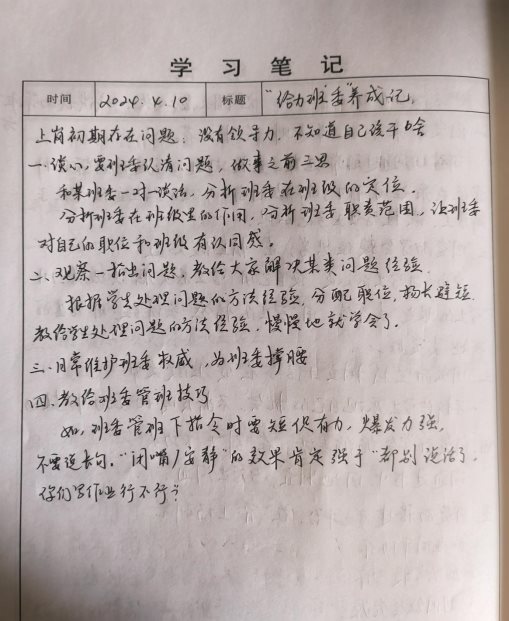 学习笔记
时间 2024.4.10 标题 “给力班委”养成记。
上岗初期存在问题：没有领导力，不知道自己该干啥
一、谈心，要班委认清问题，做事之前三思
和某班委一对一谈话，分析班委在班级的定位。
分析班委在班级里的作用，分析班委职责范围，让班委
对自己的职位和班级有认同感。
二、观察—指出问题，教给大家解决某类问题经验
根据学生处理问题的方法经验，分配职位，扬长避短，
教给学生处理问题的方法经验，慢慢地就学会了。
三、日常维护班委权威，为班委撑腰
四、教给班委管班技巧
如，班委管班下指令时要短促有力，爆发力强，
不要说长句。“闭嘴/安静”的效果肯定强于“都别说话了，
你们写作业行不行？